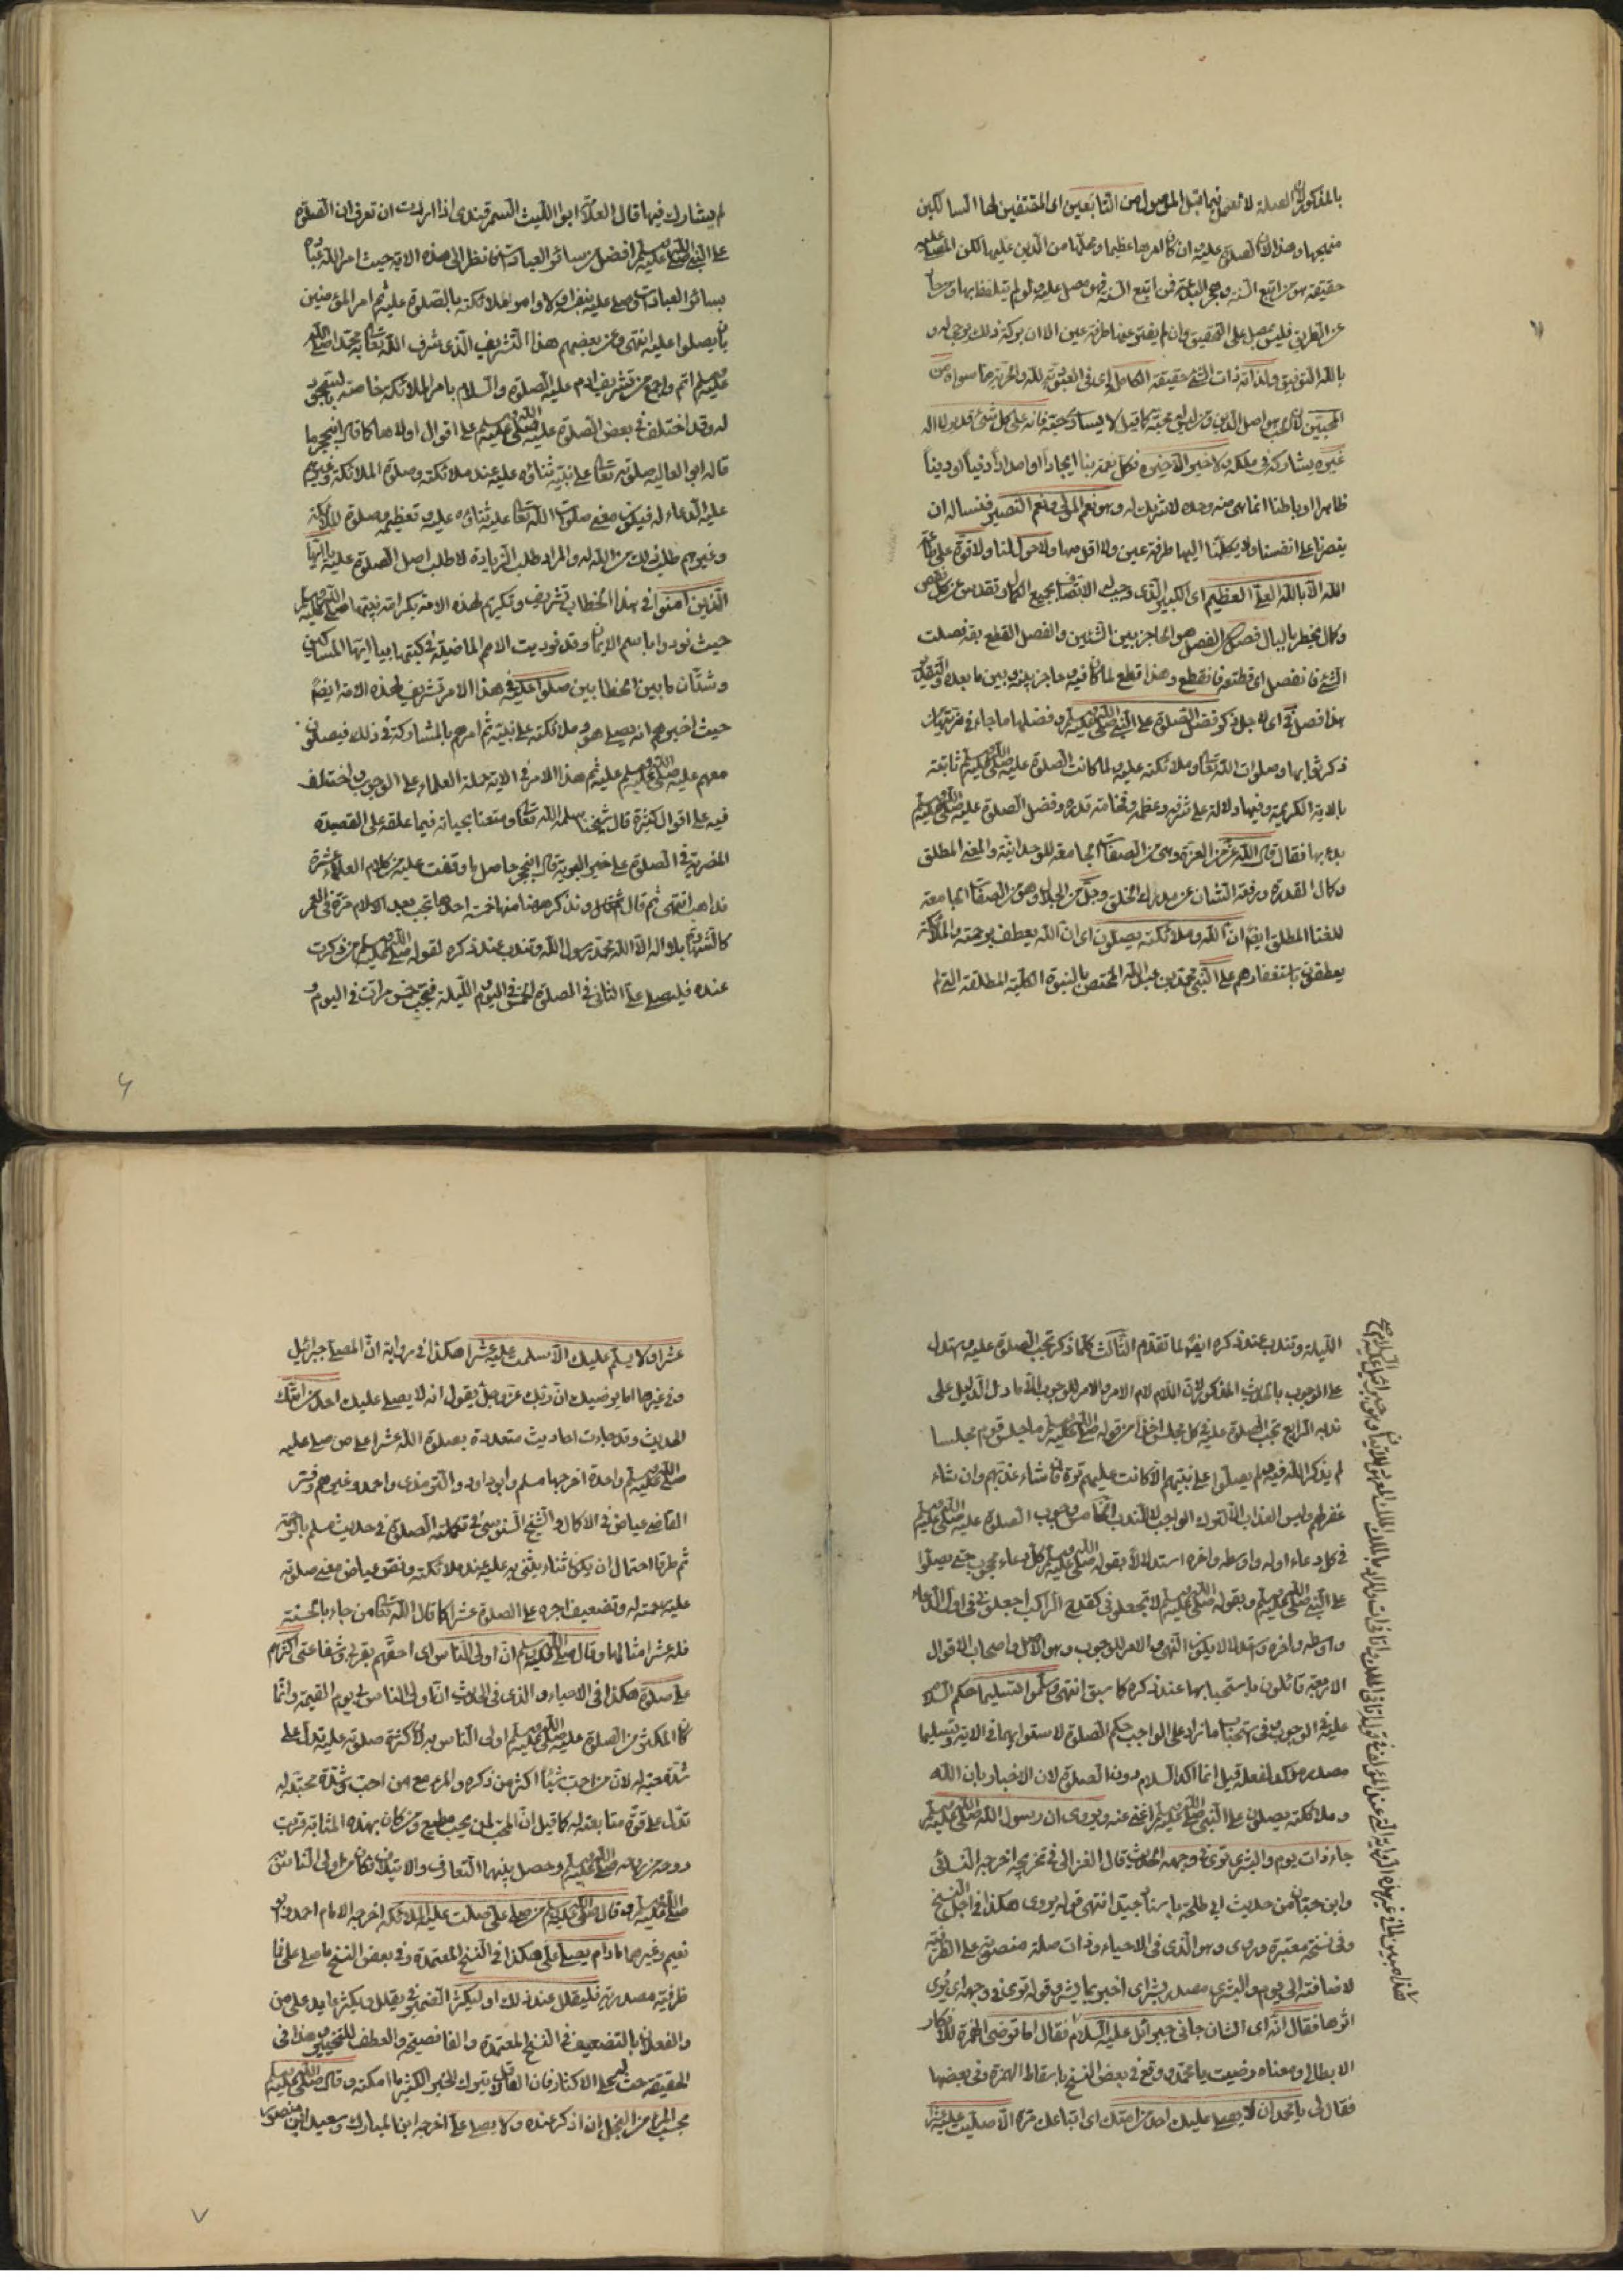 بالمذكور لان الصلة لا تعمل فيما قبل الموصول من التابعين اى المقتفين لها السالكين
منهجها وهذا لان الصلوة عليه وان كان امرها عظيما وعملها من الدين عليها لكن المصلى عليه
حقيقة هو من اتبع السنة وهجر البدعة فمن اتبع السنة فهو مصل عليه ولو لم يتلفظ بها ومن حاد
عن الطريق فليس بمصل على التحقيق وان لم يفتر عنها طرفة عين الا ان بركة ذلك يرجى له و
بالله التوفيق
المحبين
غيره يشاركه فى ملكه ولا خير الا خيره فكل نعمة بنا ايجادا او امدادا دنيا او دينا
ظاهرا او باطنا انما هى منه وحده لا شريك له وهو نعم المولى ونعم النصير فنساله ان
ينصرنا على انفسنا ولا يكلنا اليها طرفة عين ولا اقل منها ولا حول لنا ولا قوة على طاعة
الله الا بالله العلى العظيم اى الكبير الذى وجب له الاتصاف بجميع الكمال وتقدس عن كل نقص
وكمال يخطر بالبال فصل الفصل هو الحاجز بين الشيئين والفصل القطع يقال فصلت
الشئ فانفصل اى قطعته فانقطع وهذا قطع لما كان فيه وحاجز بينه وبين ما بعده والتقدير
هذا فصل فى اى لاجل ذكر فضل الصلوة على النبى صلى الله عليه وسلم وفضلها ما جاء فى مزيتها من
ذكر ثوابها وصلوات الله تعالى وملائكته عليه ولما كانت الصلوة عليه صلى الله عليه وسلم ثابتة
بالاية الكريمة وفيها دلالة على شرفه وعظمه وفخامة قدره وفضل الصلوة عليه صلى الله عليه وسلم
بدء بها فقال قال الله عز من العزة وهى من الصفات الجامعة للوحدانية والمعنى المطلق
وكمال القدرة ورفعة الشان عن مدارك الخلق وجل من الجلال وهو من الصفات الجامعة
للغنا المطلق ايضا ان الله وملائكته يصلون اى ان الله يعطف برحمته والملائكة
يعطفون باستغفارهم على النبى محمد بن عبد الله المختص بالنبوة الكلية المطلقة التى لم
لم يشارك فيها قال العلامة ابو الليث السمرقندى اذا اردت ان تعرف ان الصلوة
على النبى صلى الله عليه وسلم افضل من سائر العبادات فانظر الى هذه الاية حيث امر الله عباده
بسائر العبادات وصلى عليه بنفسه اولا وامر ملائكته بالصلوة عليه ثم امر المؤمنين
بان يصلوا عليه انتهى وعن بعضهم هذا التشريف الذى شرف الله تعالى به محمدا صلى الله
عليه وسلم اتم واجمع من تشريف ادم عليه الصلوة والسلام بامر الملائكة خاصة بالسجود
له وقد اختلف فى بعض الصلوة عليه صلى الله عليه وسلم على اقوال اولاها كما قال ابن حجر ما
قاله ابو العالية صلوته تعالى على نبيه ثناؤه عليه عند ملائكته وصلوة الملائكة وغيرهم
عليه الدعاء له فيكون معنى صلوة الله تعالى عليه ثناؤه عليه وتعظيمه وصلوة الملائكة
وغيرهم طلب ذلك من الله له والمراد طلب الزيادة لا طلب اصل الصلوة عليه يا ايها
الذين آمنوا فى هذا الخطاب تشريف وتكريم لهذه الامة بكرامة نبيها صلى الله عليه وسلم
حيث نودوا باسم الايمان وقد نوديت الامم الماضية فى كتبها بيا ايها المساكين
وشتان ما بين الخطابين صلوا عليه فى هذا الامر تشريف لهذه الامة ايضا
حيث اخبرهم انه يصلى هو وملائكته على نبيه ثم امرهم بالمشاركة فى ذلك فيصلون
معهم عليه صلى الله عليه وسلم ثم هذا الامر فى الاية حمله العلماء على الوجوب واختلف
فيه على اقوال كثيرة قال شيخنا سلمه الله تعالى ومتعنا بحياته فيما علقه على القصيدة
المضرية فى الصلوة على خير البرية قال ابن حجر حاصل ما وقفت عليه من كلام العلماء عشرة
مذاهب انتهى ثم قال شيخنا ونذكر ههنا منها خمسة احدها تجب بعد الاسلام مرة فى العمر
كالشهادة بلا اله الا الله محمد رسول الله وتندب عند ذكره لقوله صلى الله عليه وسلم من ذكرت
عنده فليصل على الثانى فى الصلوة الخمس فى اليوم والليلة فتجب خمس مرات فى اليوم و
الليلة وتندب عند ذكره ايضا لما تقدم الثالث كلما ذكر تجب الصلوة عليه واستدل
على الوجوب بالحديث المذكور لان اللام لام الامر والامر للوجوب الا ما دل الدليل على
ندبه الرابع تجب الصلوة عليه فى كل مجلس اخذا من قوله صلى الله عليه وسلم ما جلس قوم مجلسا
لم يذكر الله فيه ولم يصلوا على نبيهم الا كانت عليهم ترة فان شاء عذبهم وان شاء
غفر لهم وليس العذاب الا لترك الواجب لا الندب الخامس وجوب الصلوة عليه صلى الله عليه وسلم
فى كل دعاء اوله واوسطه واخره استدلالا بقوله صلى الله عليه وسلم كل دعاء محجوب حتى يصلوا
على النبى صلى الله عليه وسلم وبقوله صلى الله عليه وسلم لا تجعلونى كقدح الراكب اجعلونى فى اول الدعاء
واوسطه واخره
الاربعة قائلون باستحبابها عند ذكره كما سبق انتهى وسلموا تسليما حكم السلام
عليه فى الوجوب وفى استحباب ما زاد على الواجب حكم الصلوة لاستوائهما فى الاية وتسليما
مصدر مؤكد لفعله قيل انما اكد السلام دون الصلوة لان الاخبار بان الله
وملائكته يصلون على النبى صلى الله عليه وسلم اغنى عنه ويروى ان رسول الله صلى الله عليه وسلم
جاء ذات يوم والبشرى ترى فى وجهه الحديث قال الغزالى فى تخريجه اخرجه النسائى
وابن حبان من حديث ابى طلحة باسناد جيد انتهى قوله يروى هكذا فى اجل النسخ
وفى نسخة معتبرة وروى وهو الذى فى الاحياء وذات صلة منصوبة على الظرفية
لاضافته الى يوم والبشرى مصدر بشر اى اخبر بما يسر وقوله ترى فى وجهه اى يرى
اثرها فقال انه اى الشان جانى جبرائل عليه السلام فقال اما ترضى الهمزة للانكار
الابطالى ومعناه رضيت يا محمد ووقع فى بعض النسخ باسقاط الهمزة وفى بعضها
فقال لى يا محمد ان لا يصلى عليك احد من امتك اى اتباعك مرة الا صليت عليه عشرا
عشرا ولا يسلم عليك الا سلمت عليه عشرا هكذا فى رواية ان المصلى جبرائيل
وفى غيرها اما يرضيك ان ربك عز وجل يقول انه لا يصلى عليك احد من امتك
الحديث وقد جاءت احاديث متعددة بصلوة الله عشرا على من صلى عليه
صلى الله عليه وسلم واحدة اخرجها مسلم وابو داود والترمذى واحمد وغيرهم وفسر
القاضى عياض فى الاكمال والشيخ السنوسى فى تكملته الصلوة فى حديث مسلم بالرحمة
ثم طرقا احتمال ان يكون ثناء يثنى به عليه عند ملائكته ونص عياض معنى صلوته
عليه رحمته له وتضعيف اجره على الصلوة عشرا كما قال الله تعالى من جاء بالحسنة
فله عشر امثالها وقال صلى الله عليه وسلم ان اولى الناس اى احقهم بقربى وشفاعتى اكثرهم
على صلوة هكذا فى الاحياء والذى فى الحديث ان اولى الناس بى يوم القيمة وانما
كان المكثر من الصلوة عليه صلى الله عليه وسلم اولى الناس به لان كثرة صلوته عليه تدل على
شدة محبته له لان من احب شيئا اكثر من ذكره والمرء مع من احب وشدة محبته له
تدل على قوة متابعته له كما قيل ان المحب لمن يحب مطيع ومن كان بهذه المثابة قربت
روحه من روحه صلى الله عليه وسلم وحصل بينهما التعارف والائتلاف فكان من اولى الناس به
صلى الله عليه وسلم وقال صلى الله عليه وسلم من صلى على صلت عليه الملائكة اخرجه الامام احمد وابو
نعيم وغيرهما ما دام يصلى على هكذا فى النسخ المعتمدة وفى بعض النسخ ما صلى على فما
ظرفية مصدرية فليقلل عند ذلك او ليكثر الضمير فى يقلل ويكثر عايد على من
والفعلان بالتضعيف فى النسخ المعتمدة والفا فصيحة والعطف للتخيير وهذا فى
الحقيقة حث لهم على الاكثار فان العاقل لا يترك الخير الكثير ما امكنه وقال صلى الله عليه وسلم
بحسب المرء من البخل ان اذكر عنده ولا يصلى على اخرجه ابن المبارك وسعيد ابن منصور
٦
٧